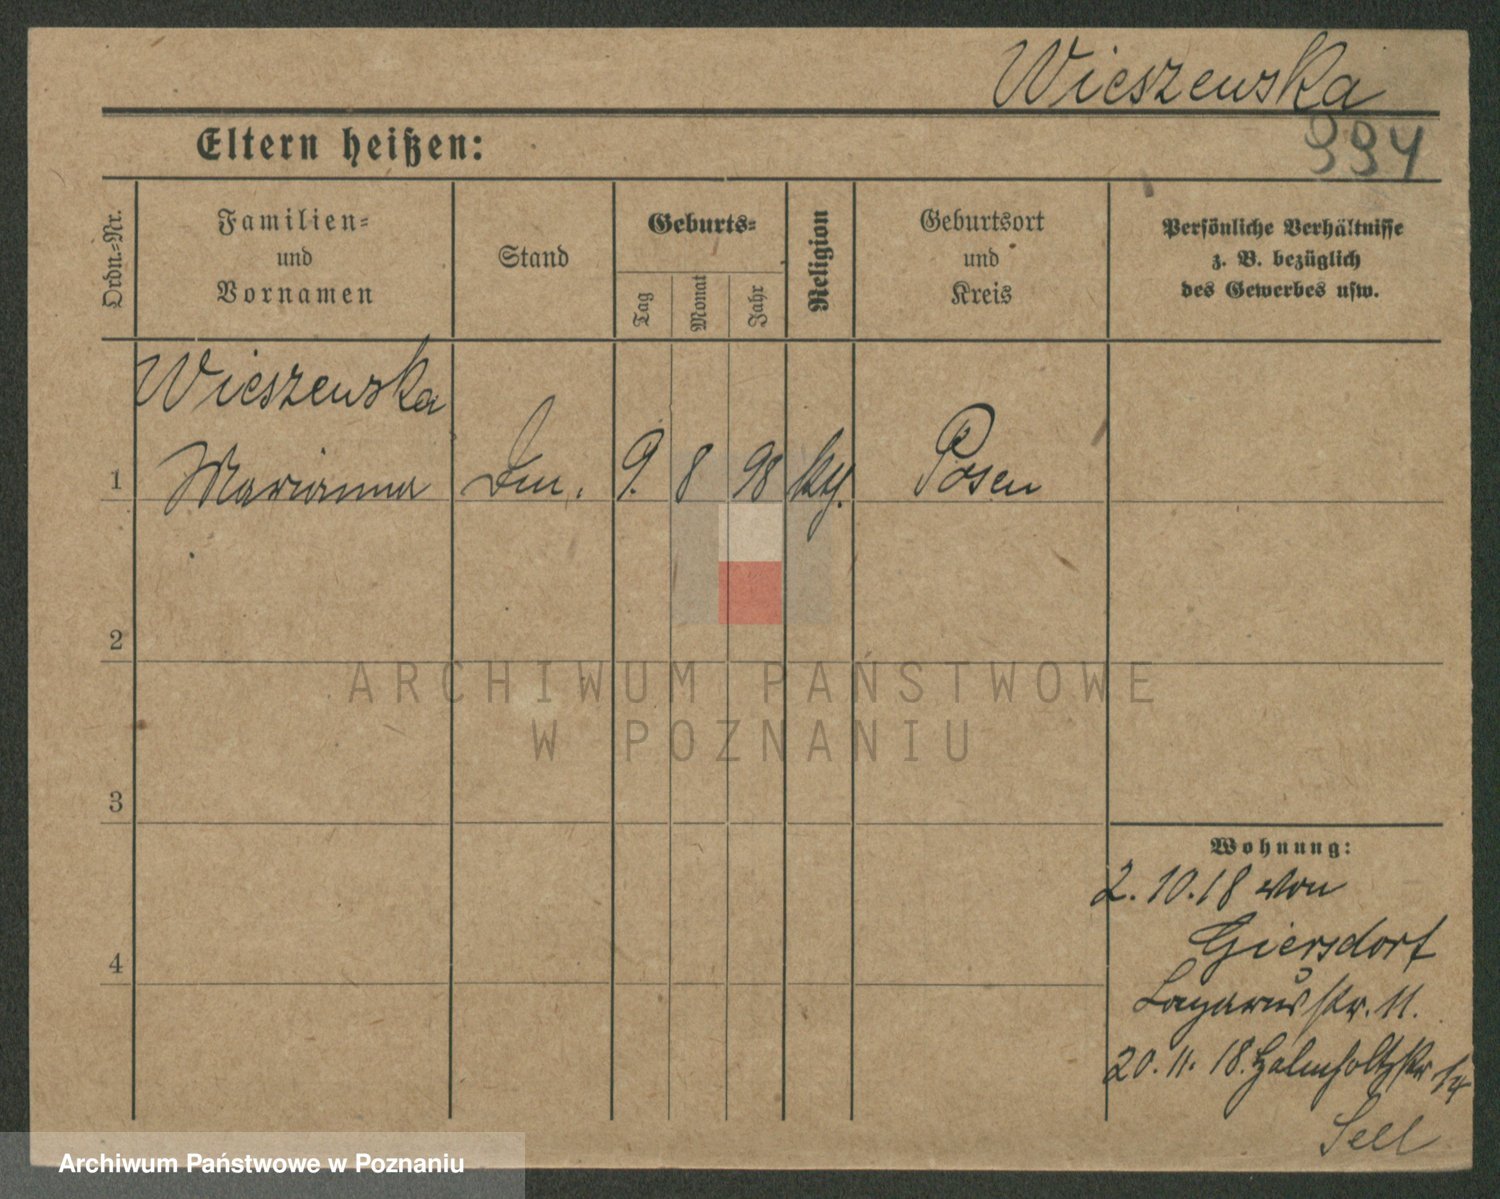 Wieszewska
994
Eltern heißen:
Ordn.=Nr.
Familien=
und
Vornamen
Stand
Geburts=
Tag
Monat
Jahr
Religion
Geburtsort
und
Kreis
Persönliche Verhältnisse
z. B. bezüglich
des Gewerbes usw.
Wieszewska
1 Marianna 9. 8 98 Posen
2
3
4
Wohnung:
2.10.18 von
Giersdorf
Lazarusstr. 11.
20.11.18. Helmholtzstr
Sell
ARCHIWUM PAŃSTWOWE
W POZNANIU
Archiwum Państwowe w Poznaniu